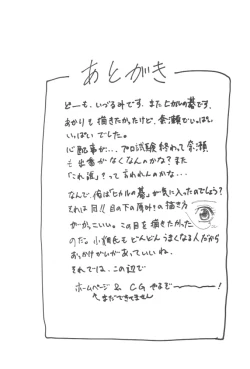 あとがき
どーも、いづみ外です。またヒカルの碁です。
あかりも描きたかったけど、奈瀬でいっぱい
いっぱいでした。
心配事が…、プロ試験終わって奈瀬
も出番がなくなんのかな？また
「これ誰？」って言われんのかな…
なんで、俺は「ヒカルの碁」が気に入ったのでしょう？
それは目!!目の下の
がかっこいい。この目を描きたかった
のだ。小畑氏もどんどんうまくなる人だから
おっかけがいがあっていいね。
それでは、この辺で
ホームページ & CG やるぞーーー！
まだできてません